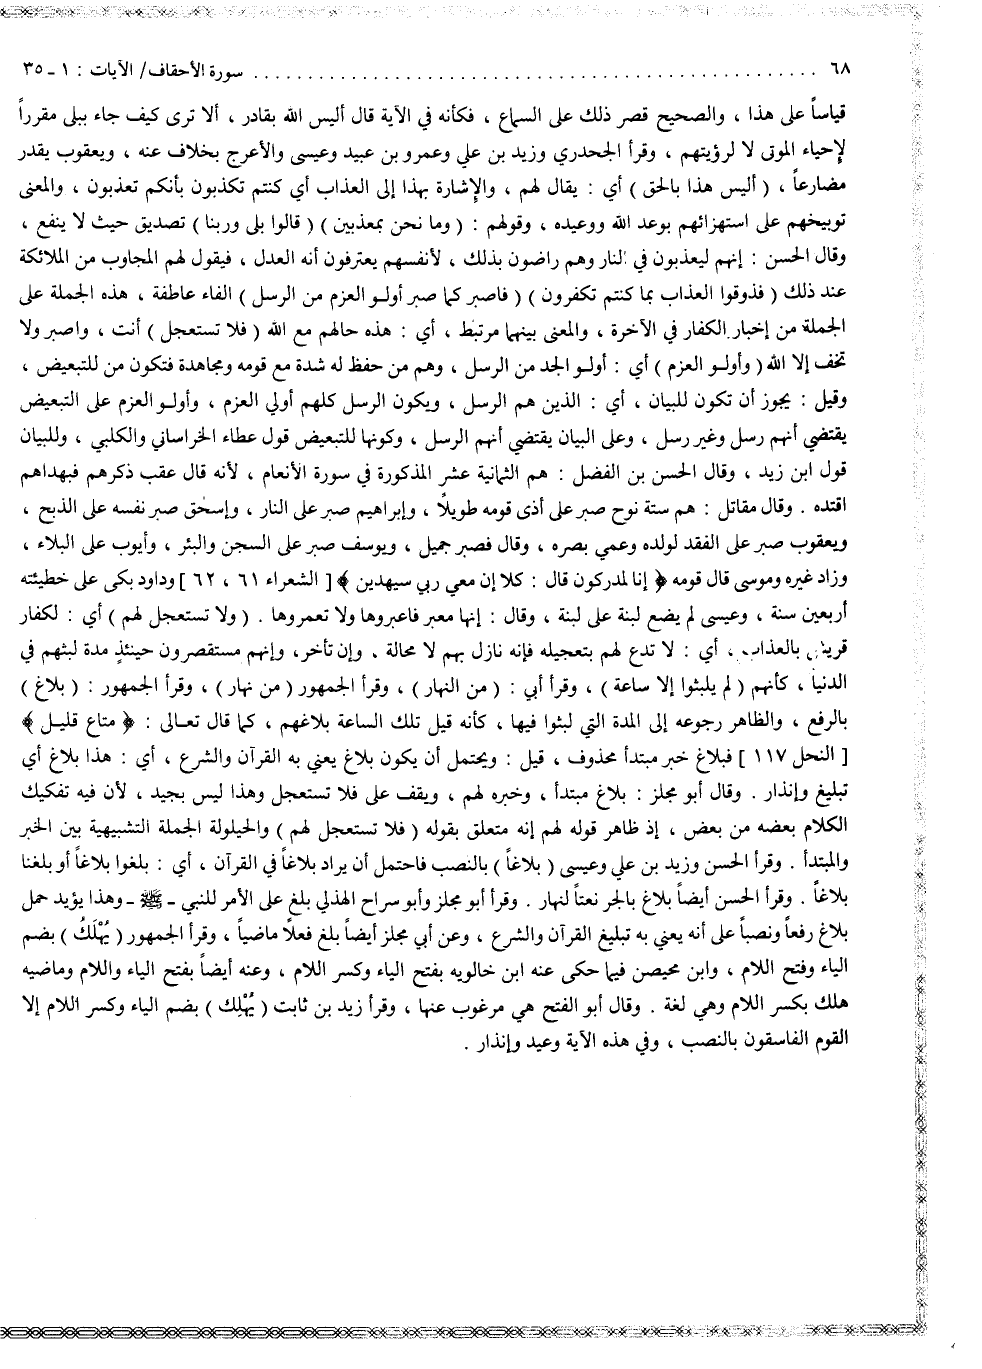 ٦٨ ........................................ سورة الأحقاف/ الآيات : ١ ـ ٣٥
قياساً على هذا ، والصحيح قصر ذلك على السماع ، فكأنه في الآية قال أليس الله بقادر ، ألا ترى كيف جاء ببلى مقرراً
لإحياء الموتى لا لرؤيتهم ، وقرأ الجحدري وزيد بن علي وعمرو بن عبيد وعيسى والأعرج بخلاف عنه ، ويعقوب يقدر
مضارعاً ، ( أليس هذا بالحق ) أي : يقال لهم ، والإشارة بهذا إلى العذاب أي كنتم تكذبون بأنكم تعذبون ، والمعنى
توبيخهم على استهزائهم بوعد الله ووعيده ، وقولهم : ( وما نحن بمعذبين ) ( قالوا بلى وربنا ) تصديق حيث لا ينفع ،
وقال الحسن : إنهم ليعذبون في النار وهم راضون بذلك ، لأنفسهم يعترفون أنه العدل ، فيقول لهم المجاوب من الملائكة
عند ذلك ( فذوقوا العذاب بما كنتم تكفرون ) ( فاصبر كما صبر أولـو العزم من الرسل ) الفاء عاطفة ، هذه الجملة على
الجملة من إخبار الكفار في الآخرة ، والمعنى بينهما مرتبط ، أي : هذه حالهم مع الله ( فلا تستعجل ) أنت ، واصبر ولا
تخف إلا الله ( وأولـو العزم ) أي : أولـو الجد من الرسل ، وهم من حفظ له شدة مع قومه ومجاهدة فتكون من للتبعيض ،
وقيل : يجوز أن تكون للبيان ، أي : الذين هم الرسل ، ويكون الرسل كلهم أولي العزم ، وأولـو العزم على التبعيض
يقتضي أنهم رسل وغير رسل ، وعلى البيان يقتضي أنهم الرسل ، وكونها للتبعيض قول عطاء الخراساني والكلبي ، وللبيان
قول ابن زيد ، وقال الحسن بن الفضل : هم الثمانية عشر المذكورة في سورة الأنعام ، لأنه قال عقب ذكرهم فبهداهم
اقتده . وقال مقاتل : هم ستة نوح صبر على أذى قومه طويلًا ، وإبراهيم صبر على النار ، وإسحٰق صبر نفسه على الذبح ،
ويعقوب صبر على الفقد لولده وعمي بصره ، وقال فصبر جميل ، ويوسف صبر على السجن والبئر ، وأيوب على البلاء ،
وزاد غيره وموسى قال قومه ﴿ إنا لمدركون قال : كلا إن معي ربي سيهدين ﴾ [ الشعراء ٦١ ، ٦٢ ] وداود بكى على خطيئته
أربعين سنة ، وعيسى لم يضع لبنة على لبنة ، وقال : إنها معبر فاعبروها ولا تعمروها . ( ولا تستعجل لهم ) أي : لكفار
قريش بالعذاب ، أي : لا تدع لهم بتعجيله فإنه نازل بهم لا محالة . وإن تأخر، وإنهم مستقصرون حينئذٍ مدة لبثهم في
الدنيا ، كأنهم ( لم يلبثوا إلا ساعة ) ، وقرأ أبي : ( من النهار ) ، وقرأ الجمهور ( من نهار ) ، وقرأ الجمهور : ( بلاغ )
بالرفع ، والظاهر رجوعه إلى المدة التي لبثوا فيها ، كأنه قيل تلك الساعة بلاغهم ، كما قال تعـالى : ﴿ متاع قليـل ﴾
[ النحل ١١٧ ] فبلاغ خبر مبتدأ محذوف ، قيل : ويحتمل أن يكون بلاغ يعني به القرآن والشرع ، أي : هذا بلاغ أي
تبليغ وإنذار . وقال أبو مجلز : بلاغ مبتدأ ، وخبره لهم ، ويقف على فلا تستعجل وهذا ليس بجيد ، لأن فيه تفكيك
الكلام بعضه من بعض ، إذ ظاهر قوله لهم إنه متعلق بقوله ( فلا تستعجل لهم ) والحيلولة الجملة التشبيهية بين الخبر
والمبتدأ . وقرأ الحسن وزيد بن علي وعيسى ( بلاغاً ) بالنصب فاحتمل أن يراد بلاغاً في القرآن ، أي : بلغوا بلاغاً أو بلغنا
بلاغاً . وقرأ الحسن أيضاً بلاغ بالجر نعتاً لنهار . وقرأ أبو مجلز وأبو سراح الهذلي بلغ على الأمر للنبي ـ ﷺ ـ وهذا يؤيد حمل
بلاغ رفعاً ونصباً على أنه يعني به تبليغ القرآن والشرع ، وعن أبي مجلز أيضاً بلغ فعلًا ماضياً ، وقرأ الجمهور ( يُهْلَكُ ) بضم
الياء وفتح اللام ، وابن محيصن فيما حكى عنه ابن خالويه بفتح الياء وكسر اللام ، وعنه أيضاً بفتح الياء واللام وماضيه
هلك بكسر اللام وهي لغة . وقال أبو الفتح هي مرغوب عنها ، وقرأ زيد بن ثابت ( يُهْلِك ) بضم الياء وكسر اللام إلا
القوم الفاسقون بالنصب ، وفي هذه الآية وعيد وإنذار .